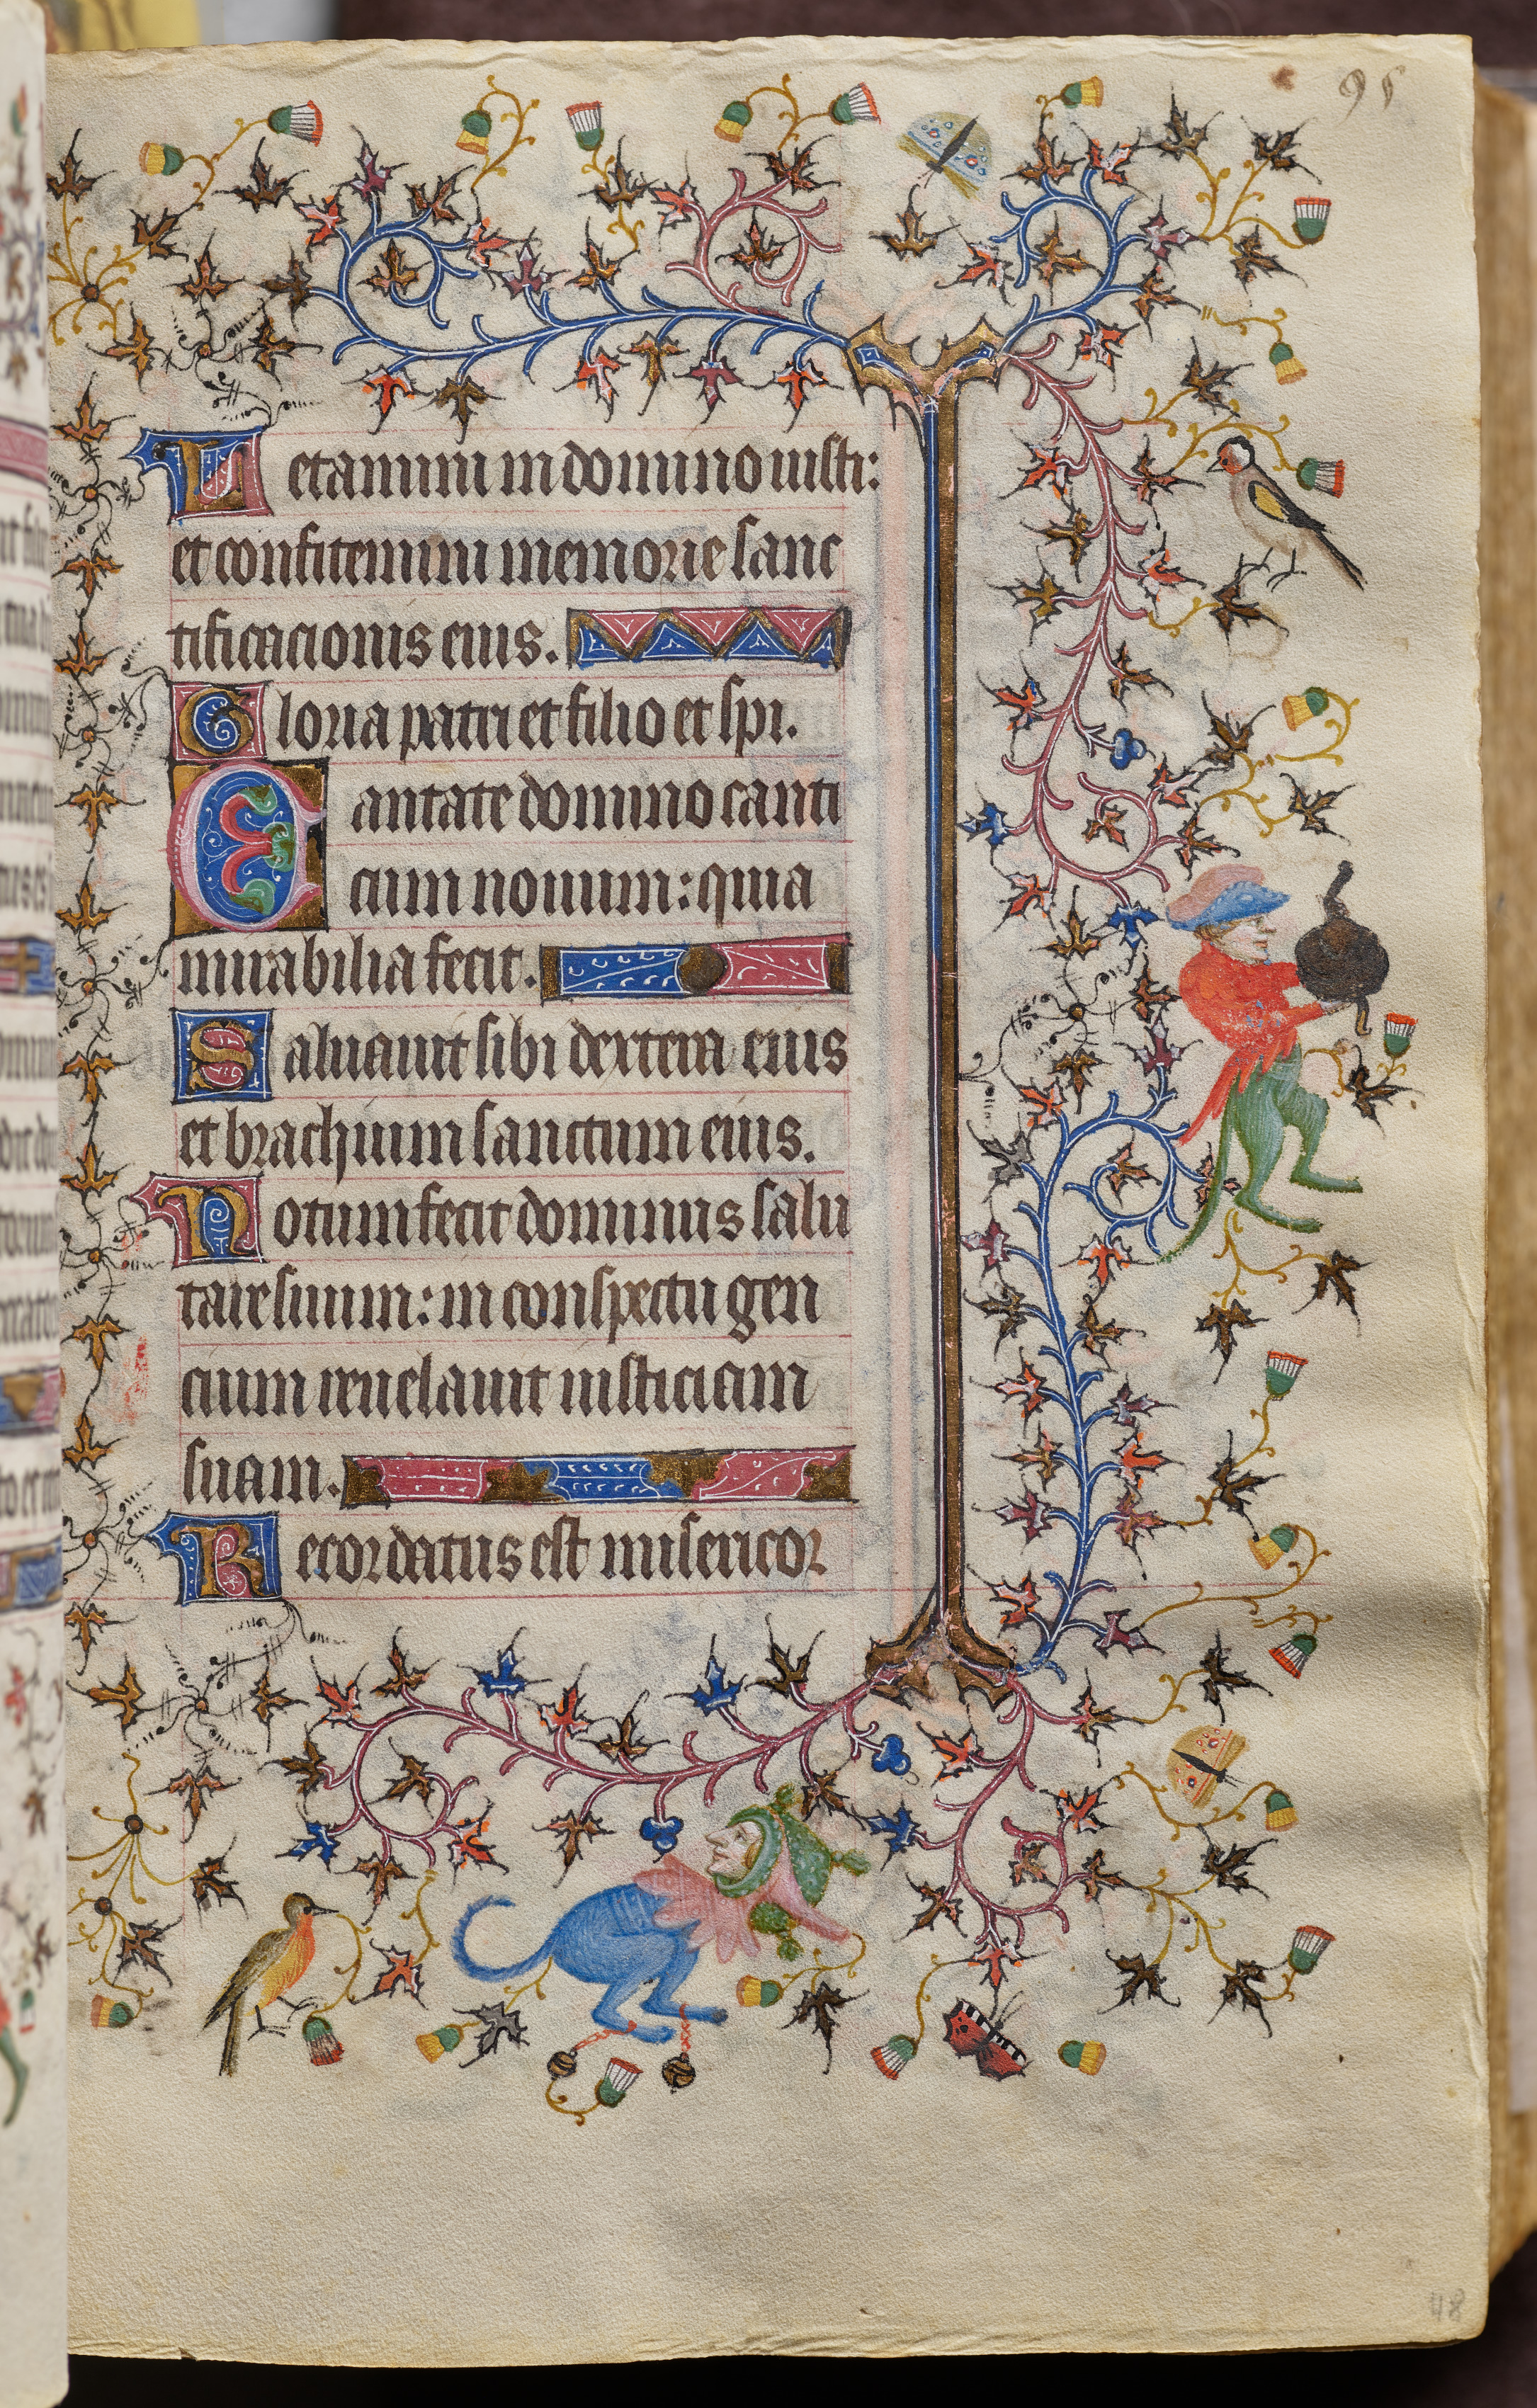 95
Letamini in domino iusti:
et confitemini memorie sanc
tificacionis eius.
Gloria patri et filio et spi.
Cantate domino canti
cum nouum: quia
mirabilia fecit.
Saluauit sibi dextera eius
et brachium sanctum eius.
Notum fecit dominus salu
tare suum: in conspectu gen
cium reuelauit iusticiam
suam.
Recordatus est misericor
48